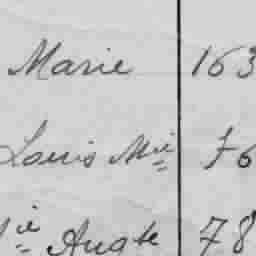 Marie 163
Louis Mie 76
ie Aug te 78